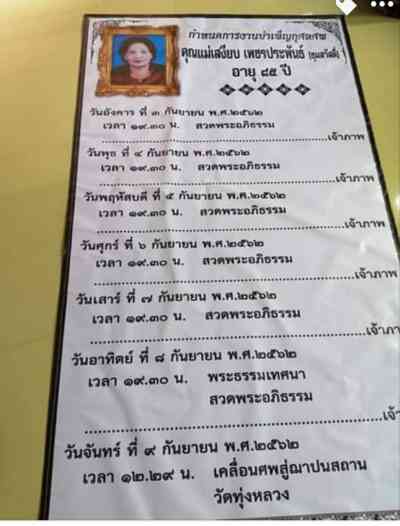 กำหนดการงานบำเพ็ญกุศลศพ
คุณแม่เสงี่ยบ เพชรประพันธ์
อายุ ๘๕ ปี
วันอังคาร ที่ ๓ กันยายน พ.ศ.๒๕๖๒
เวลา ๑๙.๓๐ น. สวดพระอภิธรรม
เจ้าภาพ
วันพุธ ที่ ๔ กันยายน พ.ศ.๒๕๖๒
เวลา ๑๙.๓๐ น. สวดพระอภิธรรม
เจ้าภาพ
วันพฤหัสบดี ที่ ๕ กันยายน พ.ศ.๒๕๖๒
เวลา ๑๙.๓๐ น. สวดพระอภิธรรม
เจ้าภาพ
วันศุกร์ ที่ ๖ กันยายน พ.ศ.๒๕๖๒
เวลา ๑๙.๓๐ น. สวดพระอภิธรรม
เจ้าภาพ
วันเสาร์ ที่ ๗ กันยายน พ.ศ.๒๕๖๒
เวลา ๑๙.๓๐ น. สวดพระอภิธรรม
เจ้าภา
วันอาทิตย์ ที่ ๘ กันยายน พ.ศ.๒๕๖๒
เวลา ๑๙.๓๐ น. พระธรรมเทศนา
สวดพระอภิธรรม
เจ้า
วันจันทร์ ที่ ๙ กันยายน พ.ศ.๒๕๖๒
เวลา ๑๒.๒๙ น. เคลื่อนศพสู่ฌาปนสถาน
วัดทุ่งหลวง